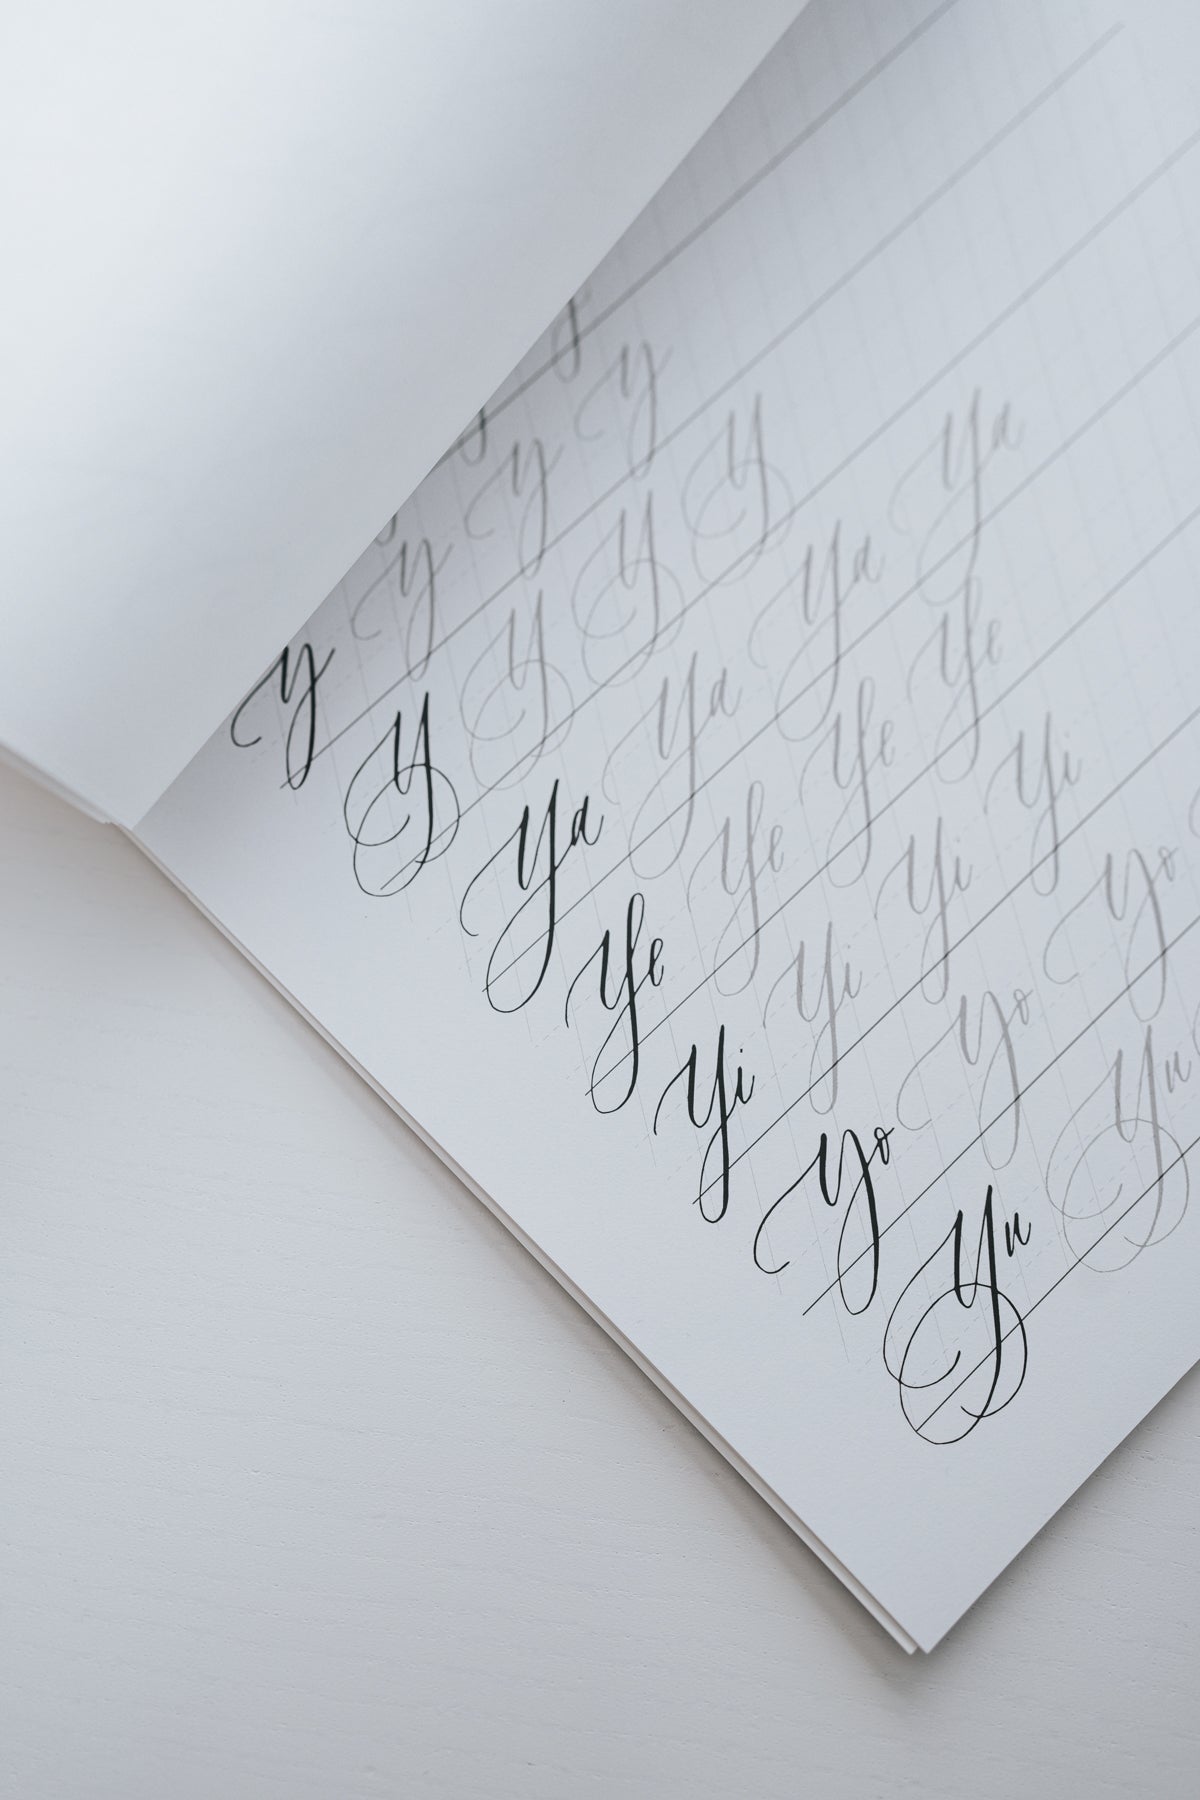 y y y y
Y Y Y Y
Ya Ya Ya Ya
Ye Ye Ye Ye
Yi Yi Yi Yi
Yo Yo Yo
Yu Yu